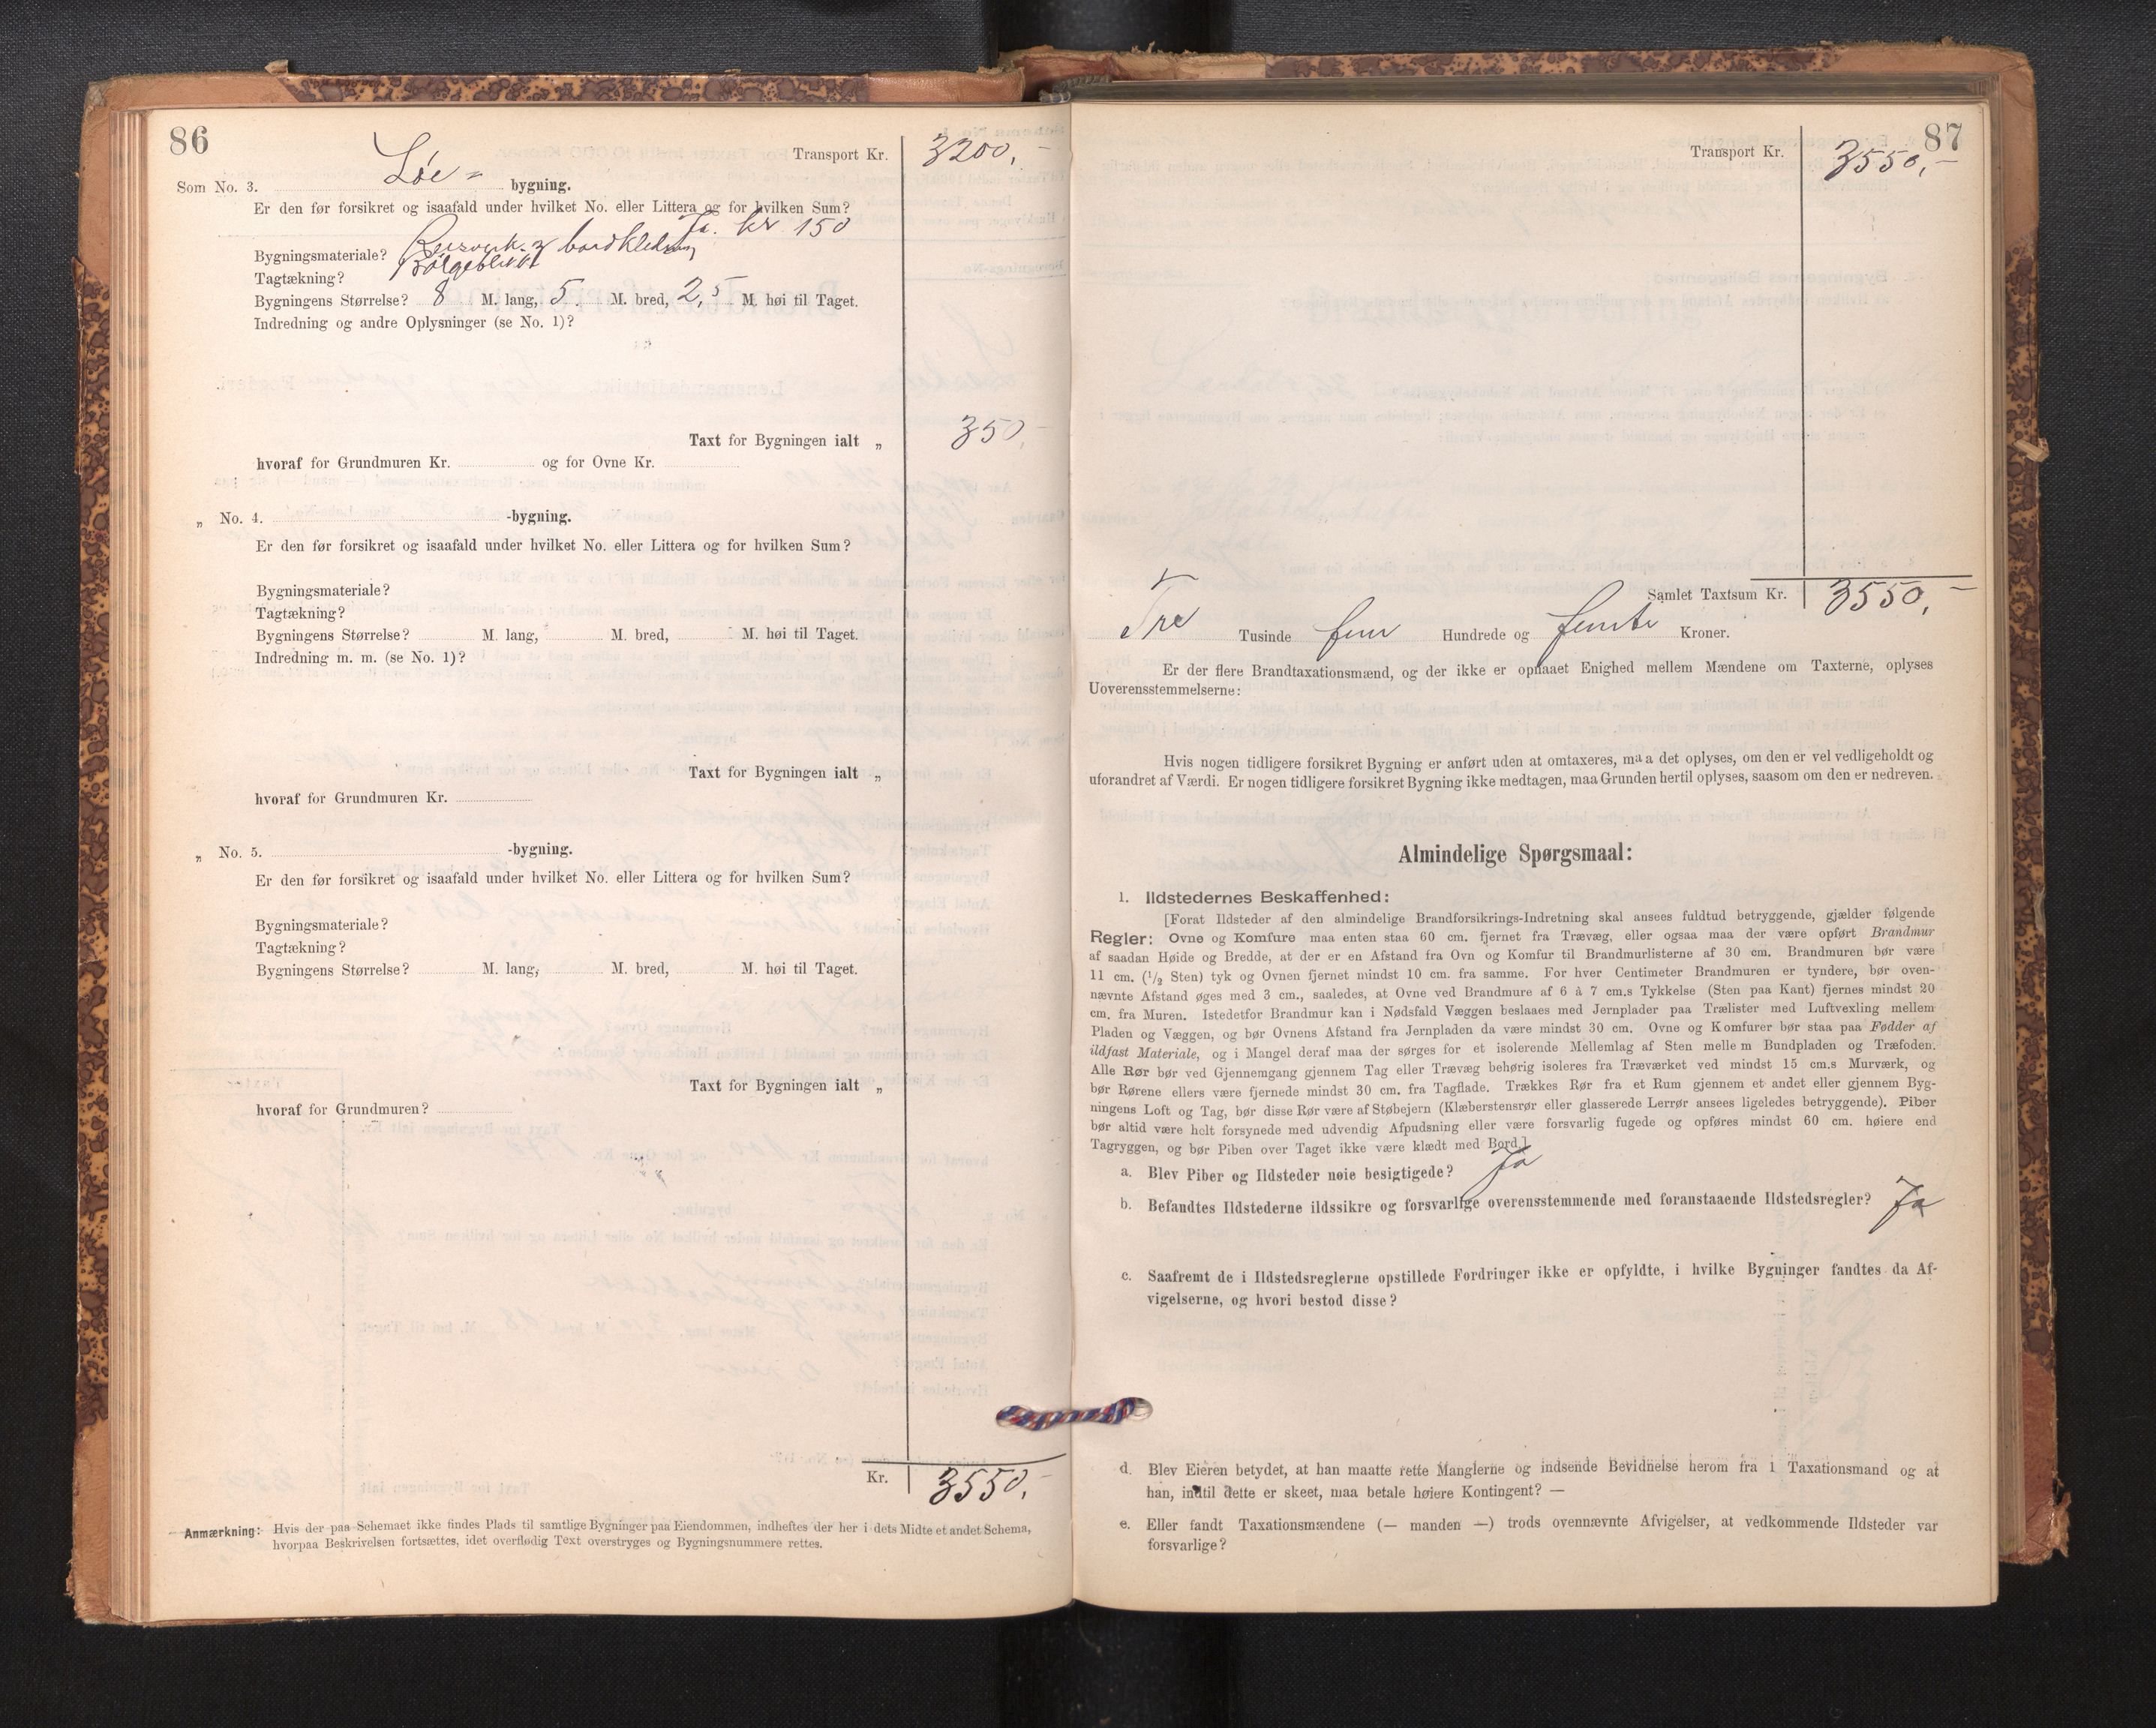 86
Transport Kr. 3200,-
Som No. 3. Løe- bygning.
Er den før forsikret og isaafald under hvilket No. eller Littera og for hvilken Sum?
Ja. kr 150
Bygningsmateriale? Reisverk z bordkledning
Tagtækning? Bølgeblikk
Bygningens Størrelse? 8 M. lang, 5. M. bred, 2,5 M. høi til Taget.
Indredning og andre Oplysninger (se No. 1)?
Taxt for Bygningen ialt „ 350,-
hvoraf for Grundmuren Kr. og for Ovne Kr.
„ No. 4. -bygning.
Er den før forsikret og isaafald under hvilket No. eller Littera og for hvilken Sum?
Bygningsmateriale?
Tagtækning?
Bygningens Størrelse? M. lang, M. bred, M. høi til Taget.
Indredning m. m. (se No. 1)?
Taxt for Bygningen ialt „
hvoraf for Grundmuren Kr.
„ No. 5. -bygning.
Er den før forsikret og isaafald under hvilket No. eller Littera og for hvilken Sum?
Bygningsmateriale?
Tagtækning?
Bygningens Størrelse? M. lang, M. bred, M. høi til Taget.
Taxt for Bygningen ialt „
hvoraf for Grundmuren?
Kr. 3550,-
Anmærkning: Hvis der paa Schemaet ikke findes Plads til samtlige Bygninger paa Eiendommen, indheftes der her i dets Midte et andet Schema,
hvorpaa Beskrivelsen fortsættes, idet overflødig Text overstryges og Bygningsnummere rettes.
87
Transport Kr. 3550,-
„
Samlet Taxtsum Kr. 3550,-
Tre Tusinde fem Hundrede og femti Kroner.
Er der flere Brandtaxationsmænd, og der ikke er opnaaet Enighed mellem Mændene om Taxterne, oplyses
Uoverensstemmelserne:
Hvis nogen tidligere forsikret Bygning er anført uden at omtaxeres, maa det oplyses, om den er vel vedligeholdt og
uforandret af Værdi. Er nogen tidligere forsikret Bygning ikke medtagen, maa Grunden hertil oplyses, saasom om den er nedreven.
Almindelige Spørgsmaal:
1. Ildstedernes Beskaffenhed:
[Forat Ildsteder af den almindelige Brandforsikrings-Indretning skal ansees fuldtud betryggende, gjælder følgende
Regler: Ovne og Komfure maa enten staa 60 cm. fjernet fra Trævæg, eller ogsaa maa der være opført Brandmur
af saadan Høide og Bredde, at der er en Afstand fra Ovn og Komfur til Brandmurlisterne af 30 cm. Brandmuren bør være
11 cm. (1/2 Sten) tyk og Ovnen fjernet mindst 10 cm. fra samme. For hver Centimeter Brandmuren er tyndere, bør oven-
nævnte Afstand øges med 3 cm., saaledes, at Ovne ved Brandmure af 6 à 7 cm.s Tykkelse (Sten paa Kant) fjernes mindst 20
cm. fra Muren. Istedetfor Brandmur kan i Nødsfald Væggen beslaaes med Jernplader paa Trælister med Luftvexling mellem
Pladen og Væggen, og bør Ovnens Afstand fra Jernpladen da være mindst 30 cm. Ovne og Komfurer bør staa paa Fødder af
ildfast Materiale, og i Mangel deraf maa der sørges for et isolerende Mellemlag af Sten mellem Bundpladen og Træfoden.
Alle Rør bør ved Gjennemgang gjennem Tag eller Trævæg behørig isoleres fra Træværket ved mindst 15 cm.s Murværk, og
bør Rørene ellers være fjernede mindst 30 cm. fra Tagflade. Trækkes Rør fra et Rum gjennem et andet eller gjennem Byg-
ningens Loft og Tag, bør disse Rør være af Støbejern (Klæberstensrør eller glasserede Lerrør ansees ligeledes betryggende). Piber
bør altid være helt forsynede med udvendig Afpudsning eller være forsvarlig fugede og opføres mindst 60 cm. høiere end
Tagryggen, og bør Piben over Taget ikke være klædt med Bord.]
a. Blev Piber og Ildsteder nøie besigtigede? Ja
b. Befandtes Ildstederne ildssikre og forsvarlige overensstemmende med foranstaaende Ildstedsregler? Ja
c. Saafremt de i Ildstedsreglerne opstillede Fordringer ikke er opfyldte, i hvilke Bygninger fandtes da Af-
vigelserne, og hvori bestod disse?
d. Blev Eieren betydet, at han maatte rette Manglerne og indsende Bevidnelse herom fra 1 Taxationsmand og at
han, indtil dette er skeet, maa betale høiere Kontingent? —
e. Eller fandt Taxationsmændene (— manden —) trods ovennævnte Afvigelser, at vedkommende Ildsteder var
forsvarlige?